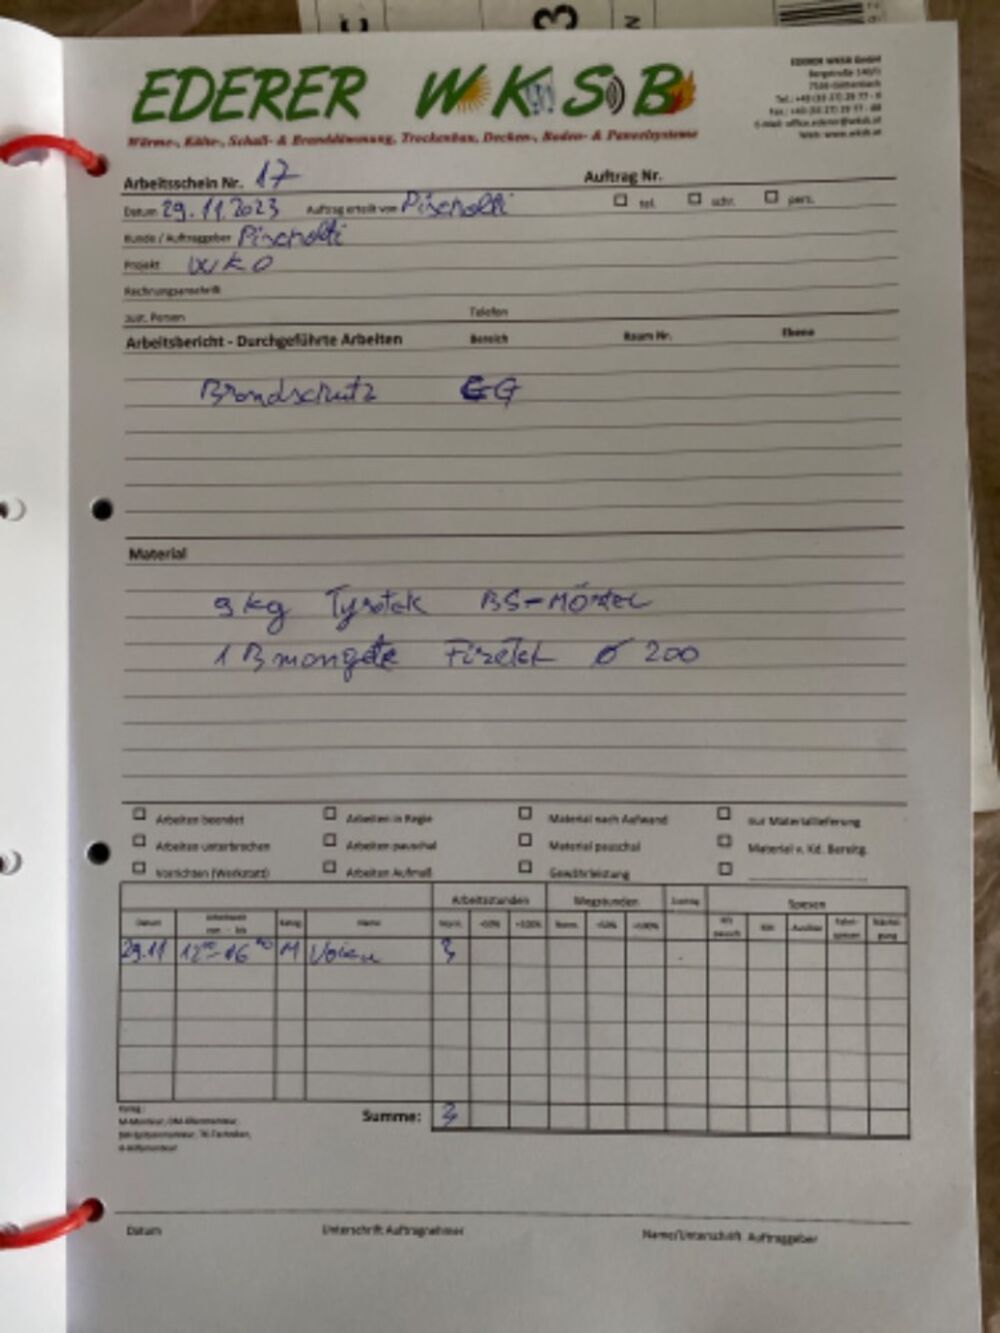 3
N
EDERER WKSB
EDERER WKSB GmbH
Bergstraße
Wärme-, Kälte-, Schall- & Branddämmung, Trockenbau, Decken-, Boden- & Paneelsysteme
E-Mail: office.ederer@wksb.at
Web: www.wksb.at
Arbeitsschein Nr. 17 Auftrag Nr.
Datum 29.11.2023 Auftrag erteilt von tel. schr. pers.
Kunde / Auftraggeber
Projekt WKO
Rechnungsanschrift
Zust. Person Telefon
Arbeitsbericht - Durchgeführte Arbeiten Bereich Raum Nr. Ebene
Brandschutz EG
Material
9 kg BS-Mörtel
1 Ø 200
Arbeiten beendet Arbeiten in Regie Material nach Aufwand nur Materiallieferung
Arbeiten unterbrochen Arbeiten pauschal Material pauschal Material v. Kd. Bereitg.
Vorrichten (Werkstatt) Arbeiten Aufmaß Gewährleistung
Arbeitsstunden Wegstunden Spesen
Datum Arbeitszeit von - bis Name Norm. +50% +100% Norm. +50% +100%
29.11 12 00 - 16 00 M 3
Summe: 3
M-Monteur, OM-Obermonteur,
Datum Unterschrift Auftragnehmer Name/Unterschrift Auftraggeber